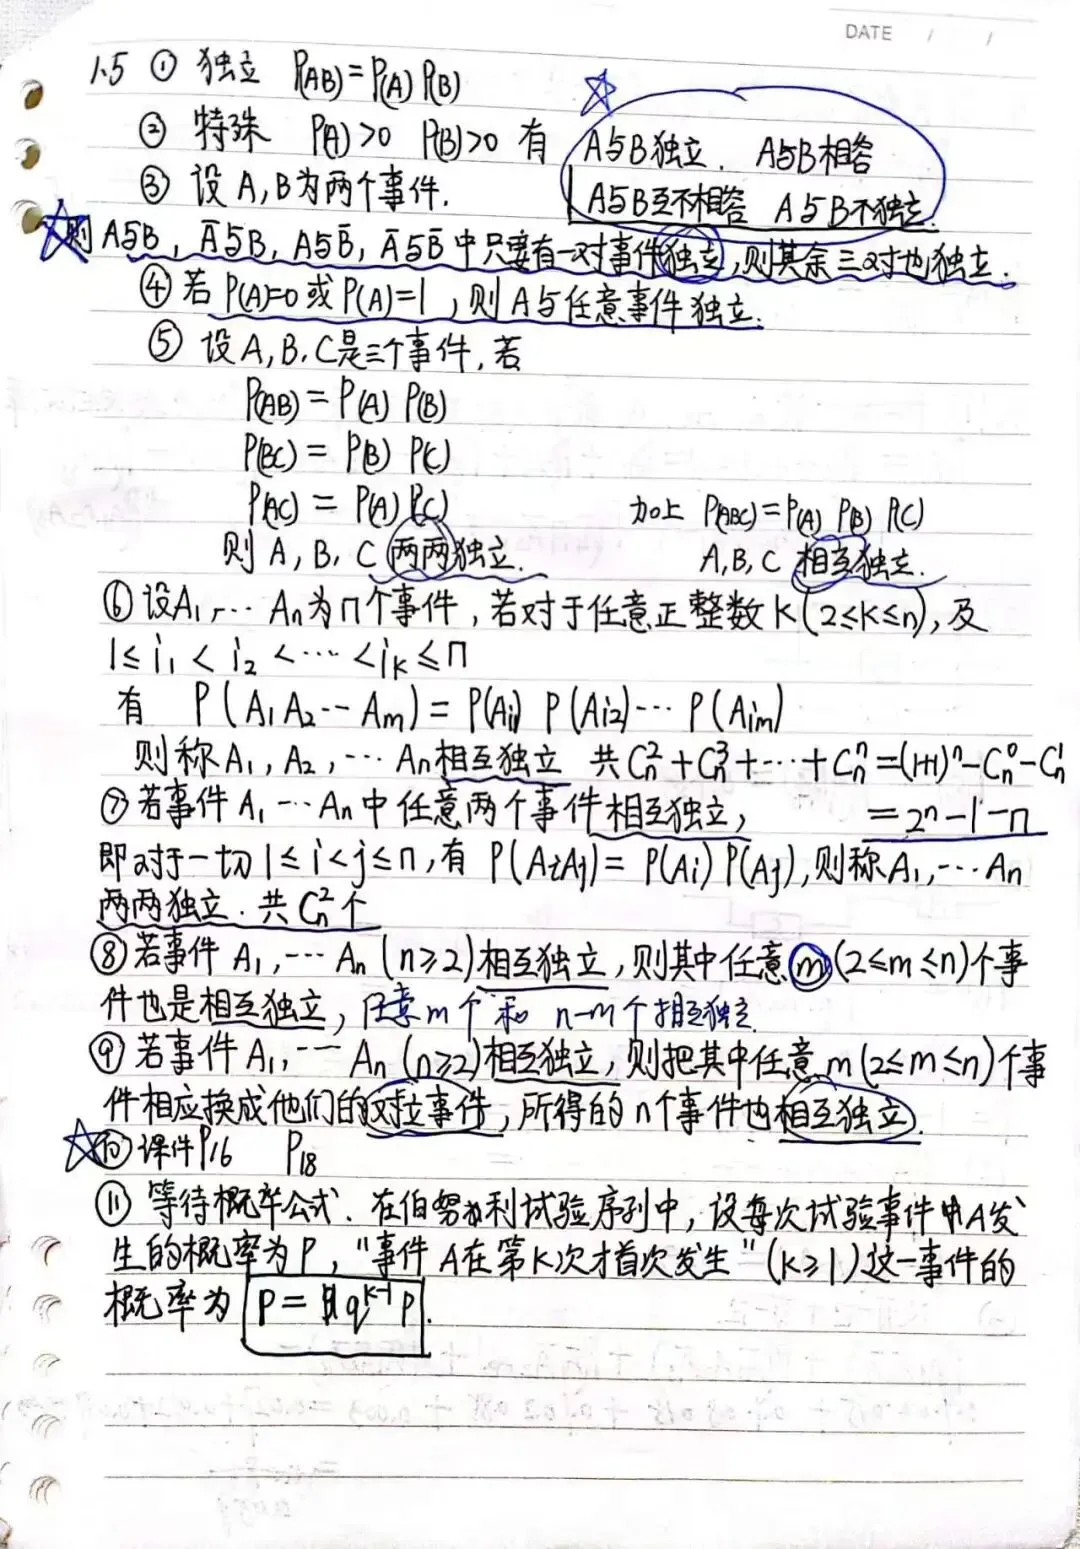 DATE / /
1.5 ① 独立 P(AB)=P(A) P(B)
② 特殊 P(A)>0 P(B)>0 有 A与B独立. A与B相容
③ 设 A,B为两个事件. A与B互不相容 A与B不独立.
则A与B, A̅与B, A与B̅, A̅与B̅中只要有一对事件独立,则其余三对也独立.
④ 若 P(A)=0 或 P(A)=1, 则A与任意事件独立.
⑤ 设A,B,C是三个事件,若
P(AB) = P(A) P(B)
P(BC) = P(B) P(C)
P(AC) = P(A) P(C) 加上 P(ABC)=P(A) P(B) P(C)
则 A,B,C 两两独立. A,B,C 相互独立.
⑥ 设A₁,… Aₙ为n个事件,若对于任意正整数K(2≤K≤n),及
1≤ i₁ < i₂ < … <iₖ ≤ n
有 P(A₁A₂…Aₘ) = P(Ai₁) P(Ai₂)… P(Aiₘ)
则称A₁,A₂,… Aₙ相互独立 共Cₙ²+Cₙ³+…+Cₙⁿ=(1+1)ⁿ-Cₙ⁰-Cₙ¹
⑦ 若事件A₁…Aₙ中任意两个事件相互独立, =2ⁿ-1-n
即对于一切1≤i<j≤n,有 P(AiAj)= P(Ai) P(Aj),则称A₁,…Aₙ
两两独立.共Cₙ²个
⑧ 若事件 A₁,… Aₙ (n≥2)相互独立,则其中任意m(2≤m≤n)个事
件也是相互独立, 任意m个和 n-m个相互独立.
⑨ 若事件A₁,… Aₙ (n≥2)相互独立,则把其中任意m(2≤m≤n)个事
件相应换成他们的对立事件,所得的n个事件也相互独立.
⑩ 课件P16 P18
⑪ 等待概率公式.在伯努利试验序列中,设每次试验事件中A发
生的概率为P,"事件A在第K次才首次发生"(K≥1)这一事件的
概率为 P= qᵏ⁻¹ P.